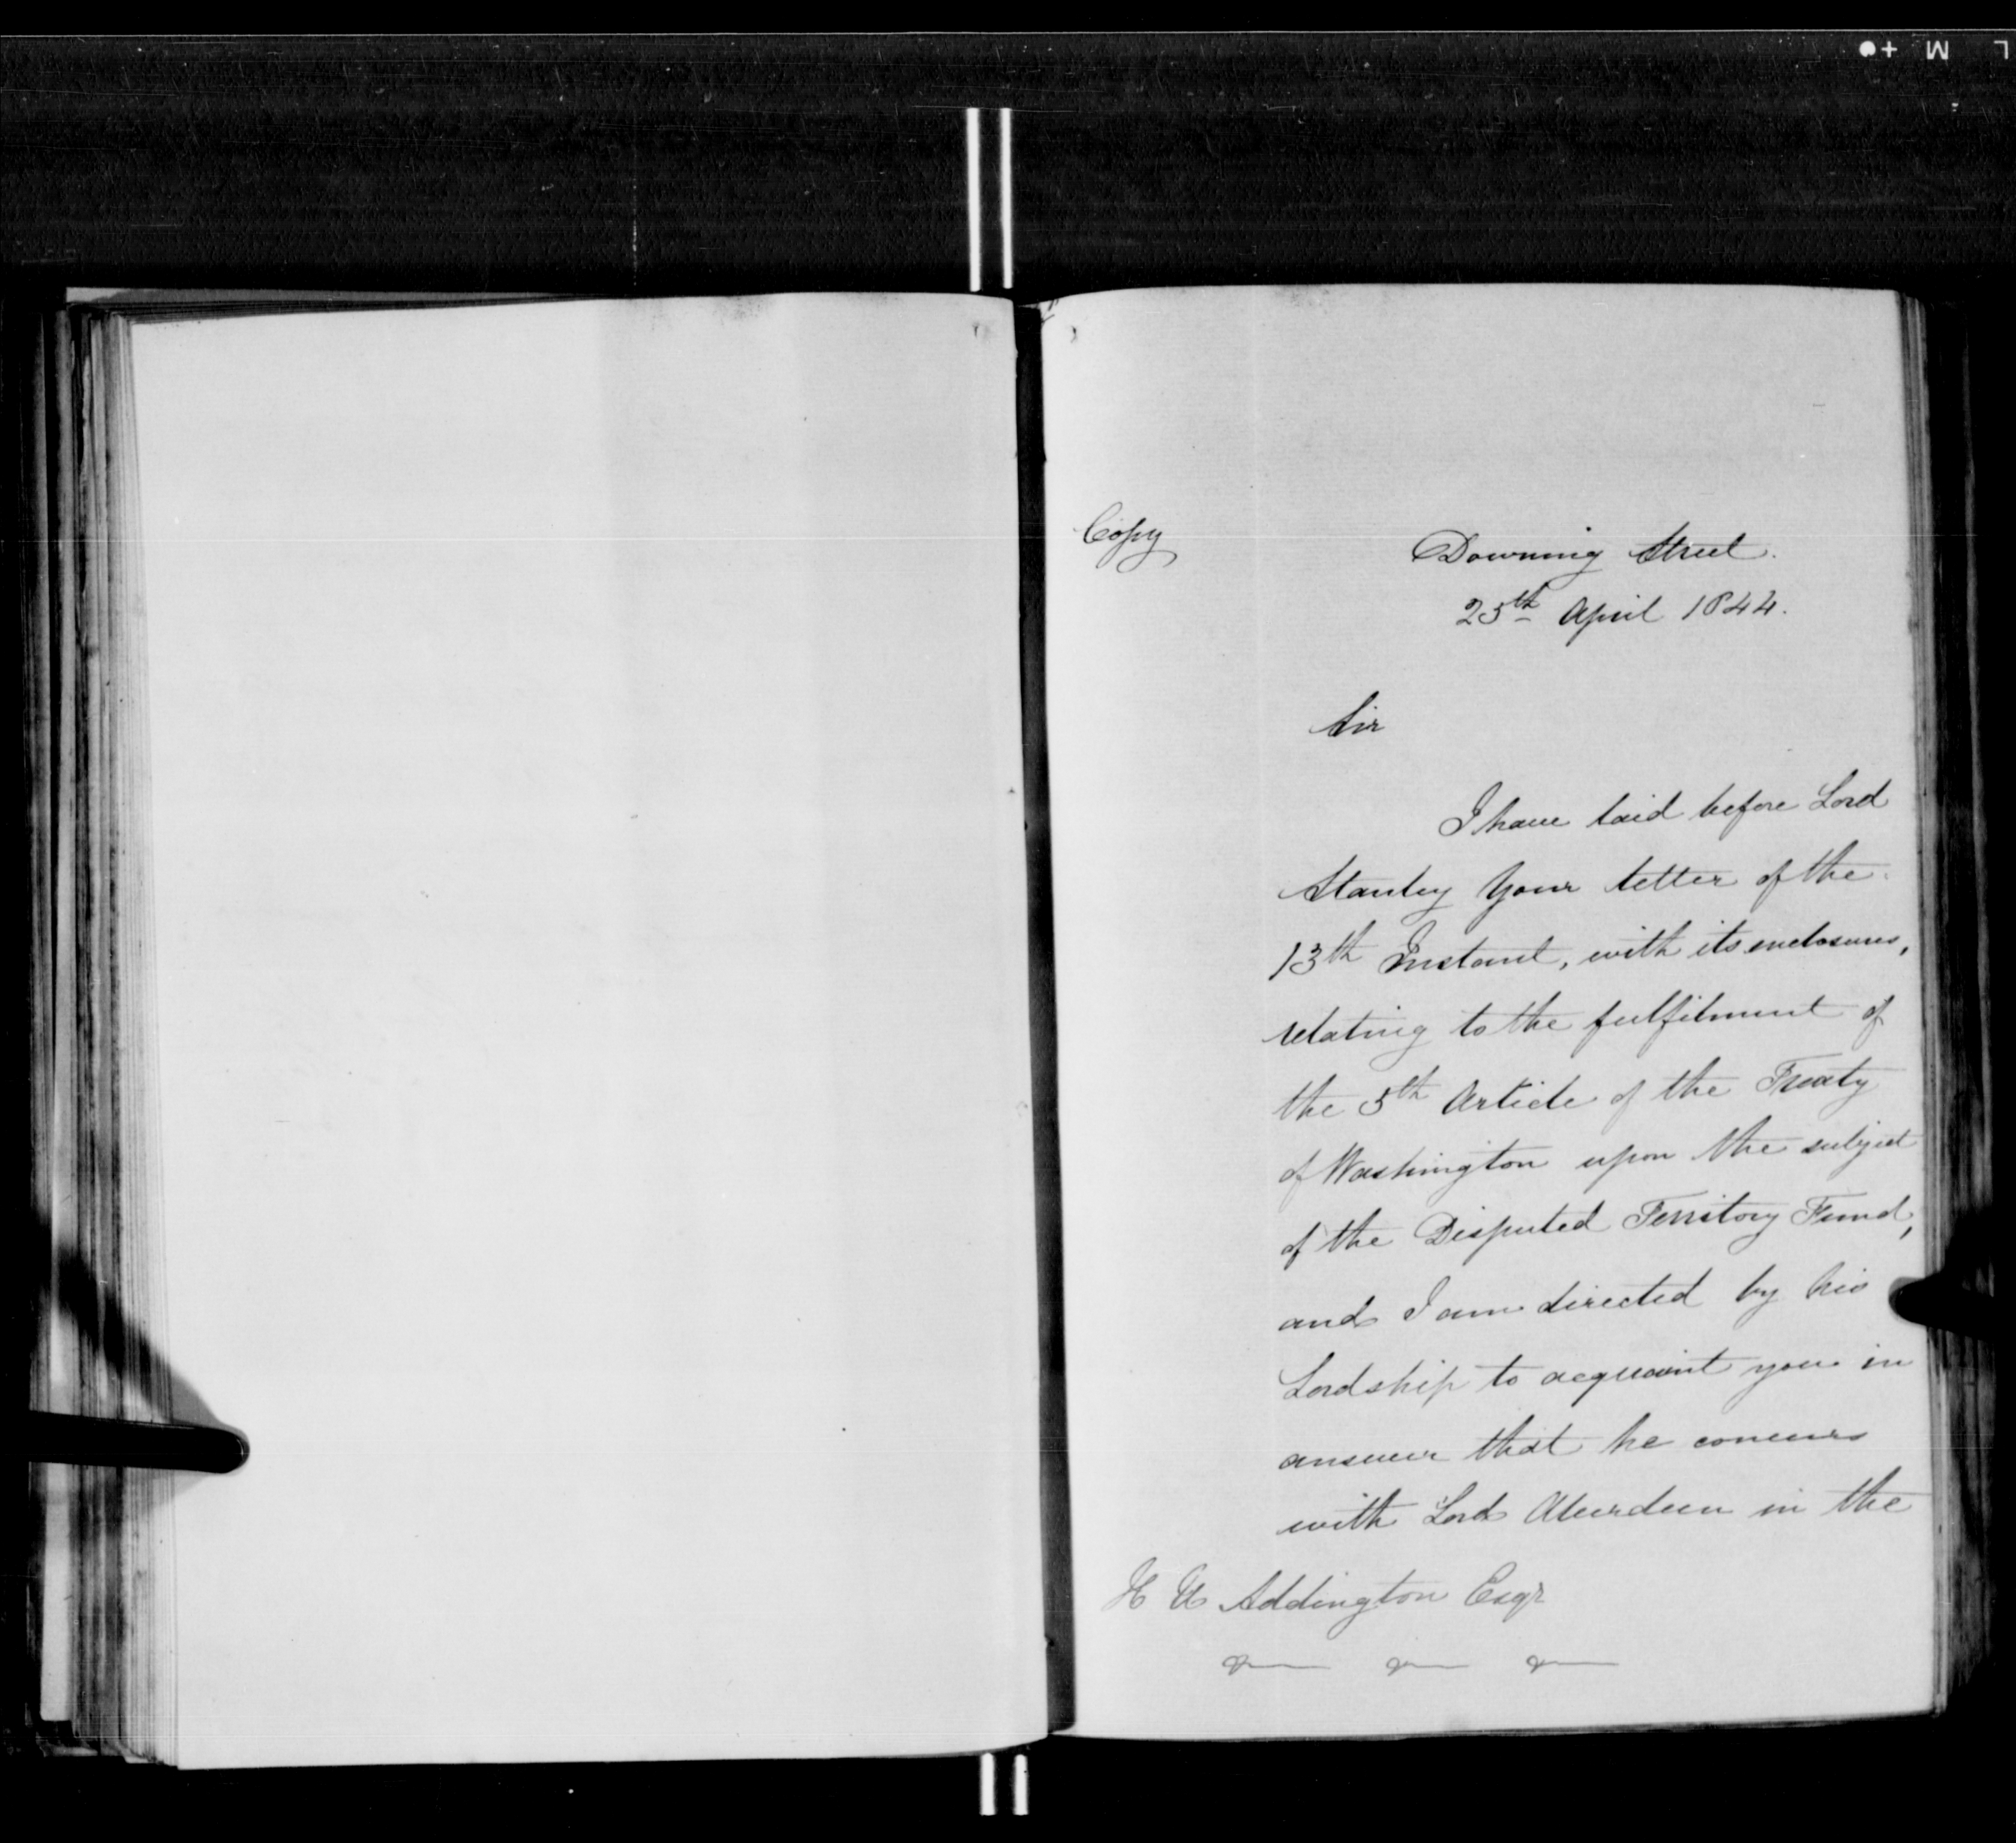 Copy
Downing Street.
25th April 1844.
Sir
I have laid before Lord
Stanley your letter of the
13th Instant, with its enclosures,
relating to the fulfilment of
the 5th Article of the Treaty
of Washington upon the subject
of the Disputed Territory Fund,
and I am directed by his
Lordship to acquaint you in
answer that he concurs
with Lord Aberdeen in the
H U Addington Esqr